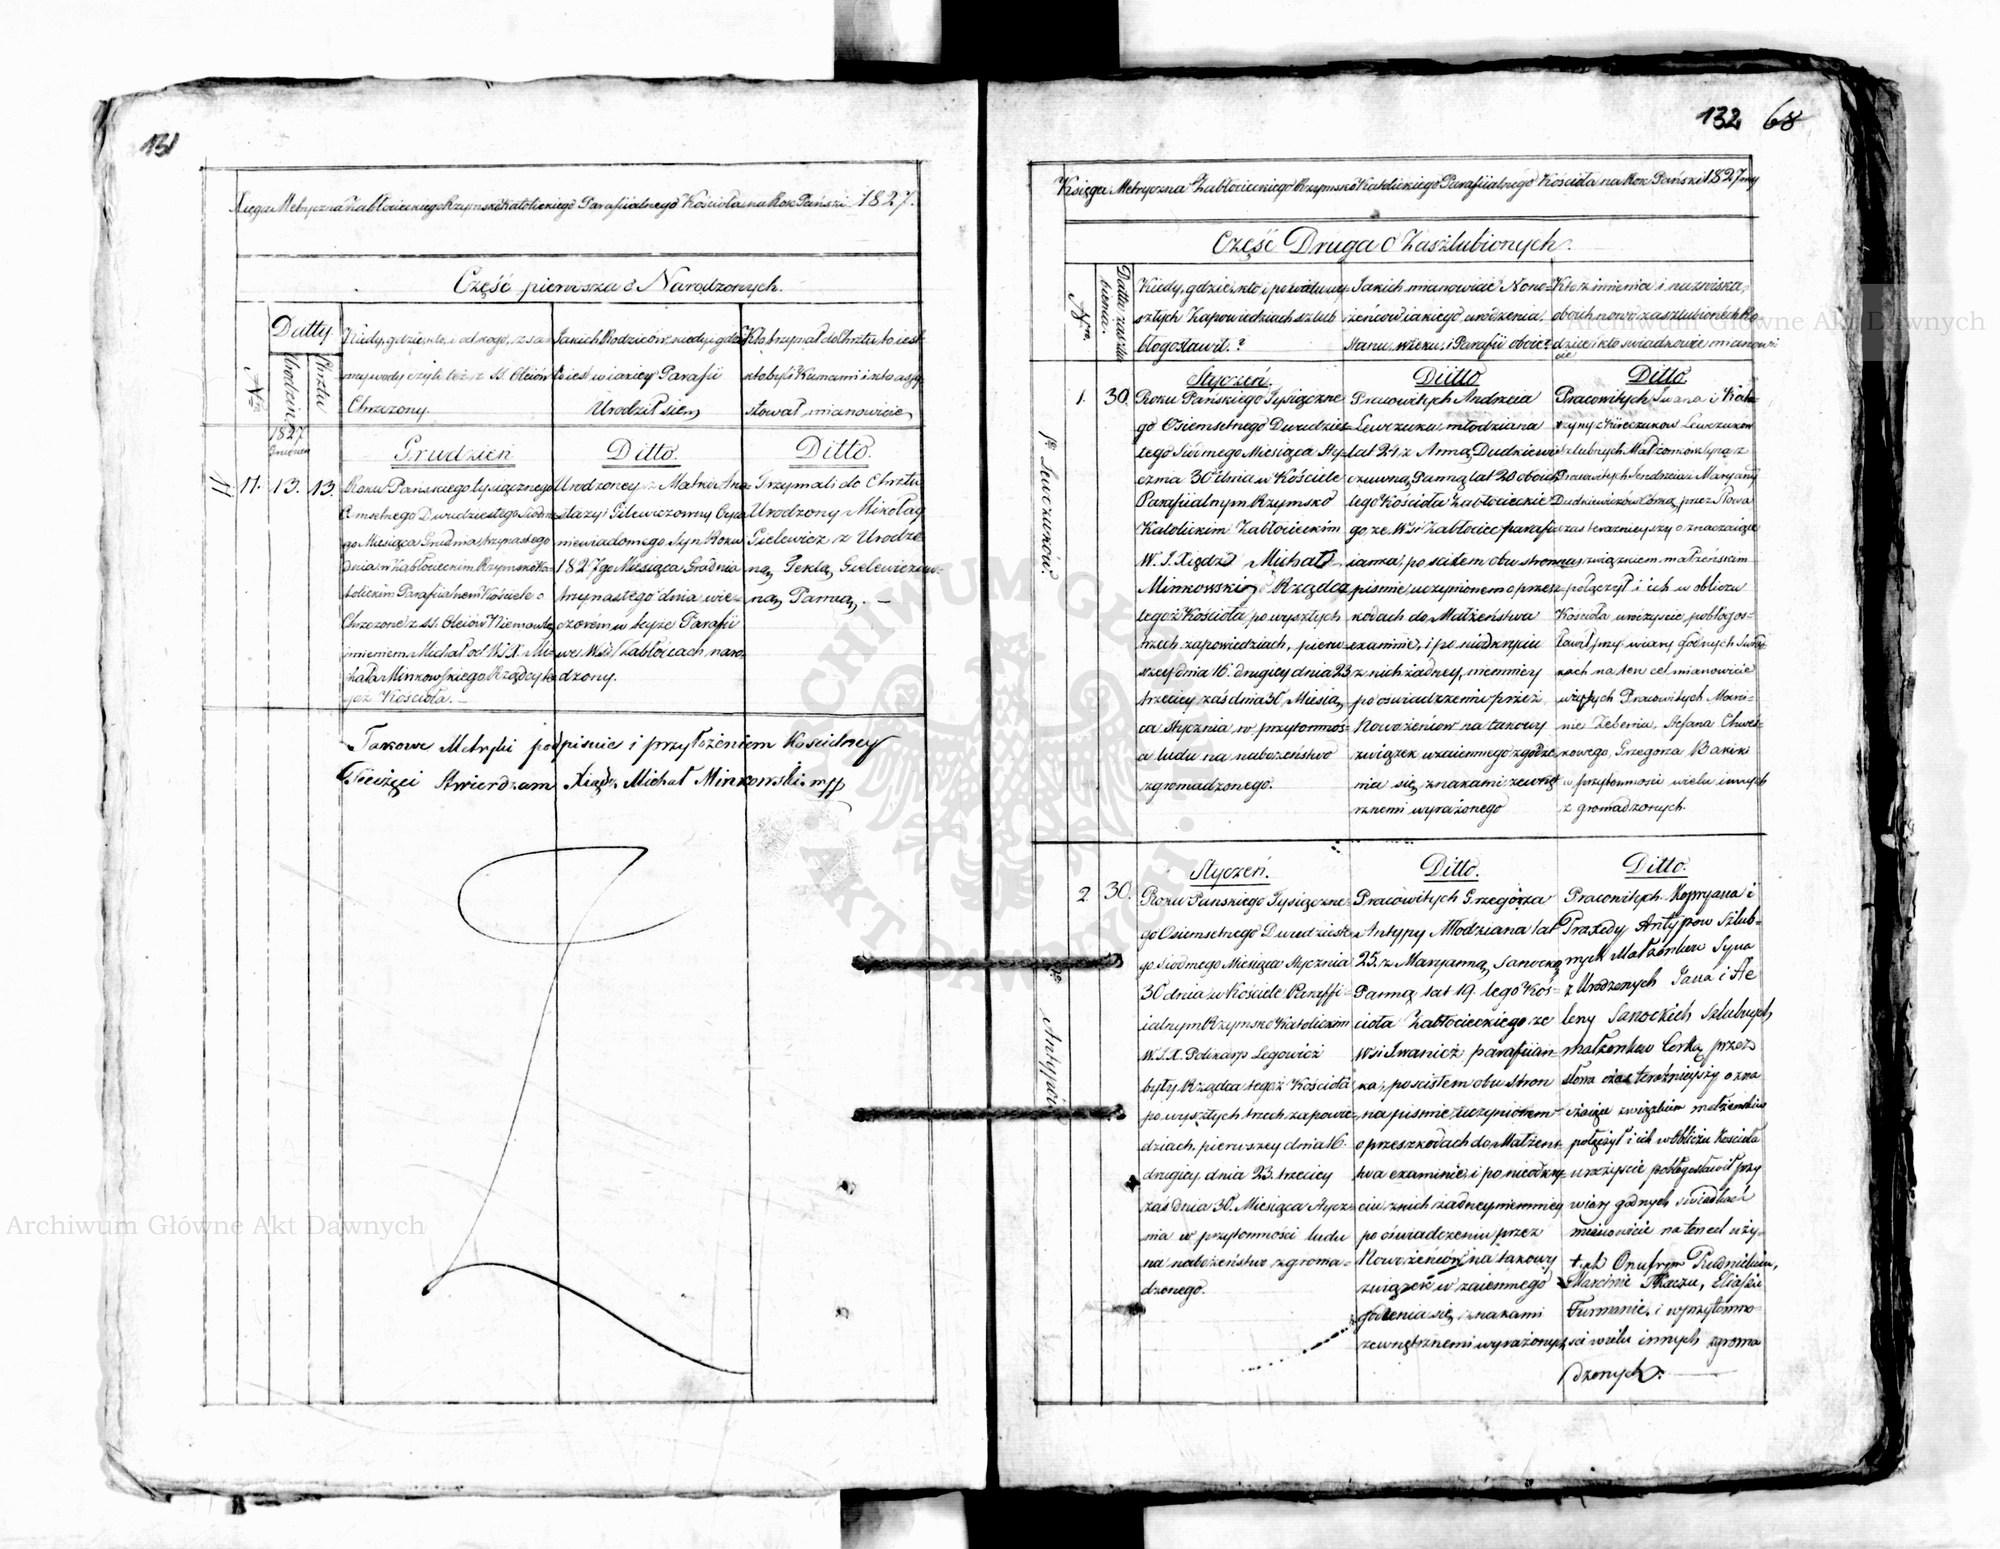 131
Xięga Metryczna Zabłocieckiego Rzymsko Katolickiego Parafiialnego Kościoła na Rok Pański 1827.
Część pierwsza o Narodzonych.
Nro
Datty
Urodzin
Chrztu
Kiedy, gdzie, kto, i od kogo, z sa=
mey wody czyli też z SS. Oleiów
Chrzczony.
Jakich Rodziców, kiedy i gdzie
to iest w iakiey Parafii
Urodził się
Kto trzymał do Chrztu to iest
kto byli Kumami i kto assy=
stował mianowicie
1827
Grudzień
Ditto.
Ditto.
11
11.
13.
13.
Roku Pańskiego tysiącznego
Ośmsetnego Dwudziestego Siódme
go Miesiąca Grudnia trzynastego
dnia w Zabłocieckim Rzymsko Ka=
tolickim Parafiialnem Kościele o
Chrzczone z SS. Oleiów Niemowle
imieniem Michał od W.J.X. Mi=
chała Minkowskiego Rządcy te
goż Kościoła.—
Urodzoney z Matki Ana=
stazyi Gilewiczowny Oyca
niewiadomego Syn Roku
1827go Miesiąca Grudnia
trzynastego dnia wie=
czorem w teyże Parafii
we Wsi Zabłoicach naro
dzony.
Trzymali do Chrztu
Urodzony Mikołay
Gielewicz z Urodzo
ną Teklą Gielewiczow=
ną Panną. —
Takowe Metryki podpisuie i przyłożeniem Kościelney
Pieczęci Stwierdzam Xiądz Michał Minkowski mpp
132 68
Księga Metryczna Zabłocieckiego Rzymsko Katolickiego Parafiialnego Kościoła na Rok Pański 1827my
Część Druga O Zaszlubionych.
Nro
Datta zaszlu
bienia.
Kiedy, gdzie, kto, i po
szłych Zapowiedziach szlub
błogosławił.?
Jakich mianowicie Nowo=
żeńców iakiego urodzenia,
Stanu, wieku, i Parafii oboie?
Kto z imienia i nazwiska,
oboich nowo zaszlubionych Ro
dzice i kto świadkowie mianowi
cie
Styczeń.
Ditto
Ditto.
1.
30.
Lewczuków.
Roku Pańskiego Tysiączne
go Osiemsetnego Dwudzies=
tego Siódmego Miesiąca Sty=
cznia 30 Dnia w Kościele
Parafiialnym Rzymsko
Katolickim Zabłocieckim
W. J. Xiądz Michał
Minkowski Rządca
tegoż Kościoła po wyszłych
trzech zapowiedziach, pierw=
szey dnia 16. drugiey dnia 23
trzeciey zaś dnia 30 Miesią
ca Stycznia w przytomnoś=
ci ludu na nabożeństwo
zgromadzonego.
Pracowitych Andrzeia
Lewczuka, młodziana
lat 24 z Anną Dudkiewi=
czowną Panną lat 20 oboich
tego Kościoła Zabłocieckie
go, ze Wsi Zabłociec parafi=
ianie, po ścisłem obu stron na
pismie uczynionem o przesz=
kodach do Małżeństwa
examinie, i po nieodkryciu
z nich żadney, niemniey
po oświadczeniu przez
Nowożeńców na takowy
związek wzaiemnego zgodze
nia się znakami zewnę
trznemi wyrażonego
Pracowitych Iwana i Kata=
rzyny Lewczuków
szlubnych Małżonków Syna z
Pracowitych Jendrzeia i Maryanny
Dudkiewiczów Córką, przez Słowa
zaś teraźnieyszy oznaczaiące
związkiem małżeńskim
połączył i ich w obliczu
Kościoła uroczyście pobłogos=
ławił przy wiary godnych Świad
kach na ten cel mianowicie
wziętych Pracowitych Marci=
nie Zeberia, Stefana
Grzegorza
w przytomności wielu innych
zgromadzonych.
Styczeń.
Ditto.
Ditto.
2
30.
Antypów
Roku Pańskiego Tysiączne=
go Osiemsetnego Dwudzieste
go Siódmego Miesiąca Stycznia
30 dnia w Kościele Paraffi=
ialnym Rzymsko Katolickim
W.J.X. Polikarp Legowicz
były Rządca tegoż Kościoła
po wyszłych trzech zapowie=
dziach, pierwszey dnia 16.
drugiey dnia 23. trzeciey
zaś dnia 30. Miesiąca Stycz=
nia w przytomności ludu
na nabożeństwo zgroma=
dzonego.
Pracowitych Grzegorza
Antypy Młodziana lat
25. z Maryanną Sanocką
Panną lat 19. tego Koś=
cioła Zabłocieckiego ze
Wsi Iwanicz parafiian=
ka, po scisłem obu stron
na pismie uczynionem
o przeszkodach do Małżens=
twa examinie, i po nieodkry=
ciu z nich żadney niemniey
po oświadczeniu przez
Nowożeńców na takowy
związek wzaiemnego
godzenia się, znakami
zewnętrznemi wyrażonych,
Pracowitych Kopryana i
Praxedy Antypow Szlub=
nych Małżonkow Syna
z Urodzonych Jana i He
leny Sanockich Szlubnych
małżonkow Corką przez
słowa czas teraźnieyszy ozna
czaiące związkiem małżenskim
połączył i ich w obliczu Kościoła
uroczyście pobłogosławił przy
wiary godnych świadkach
mianowicie na ten cel uży=
tych Onufrym
Marcinie Tkaczu, Eliaszu
Furmanie, i w przytomno=
ści wielu innych zgroma
dzonych.
Archiwum Główne Akt Dawnych
Archiwum Główne Akt Dawnych
ARCHIWUM GŁÓWNE AKT DAWNYCH